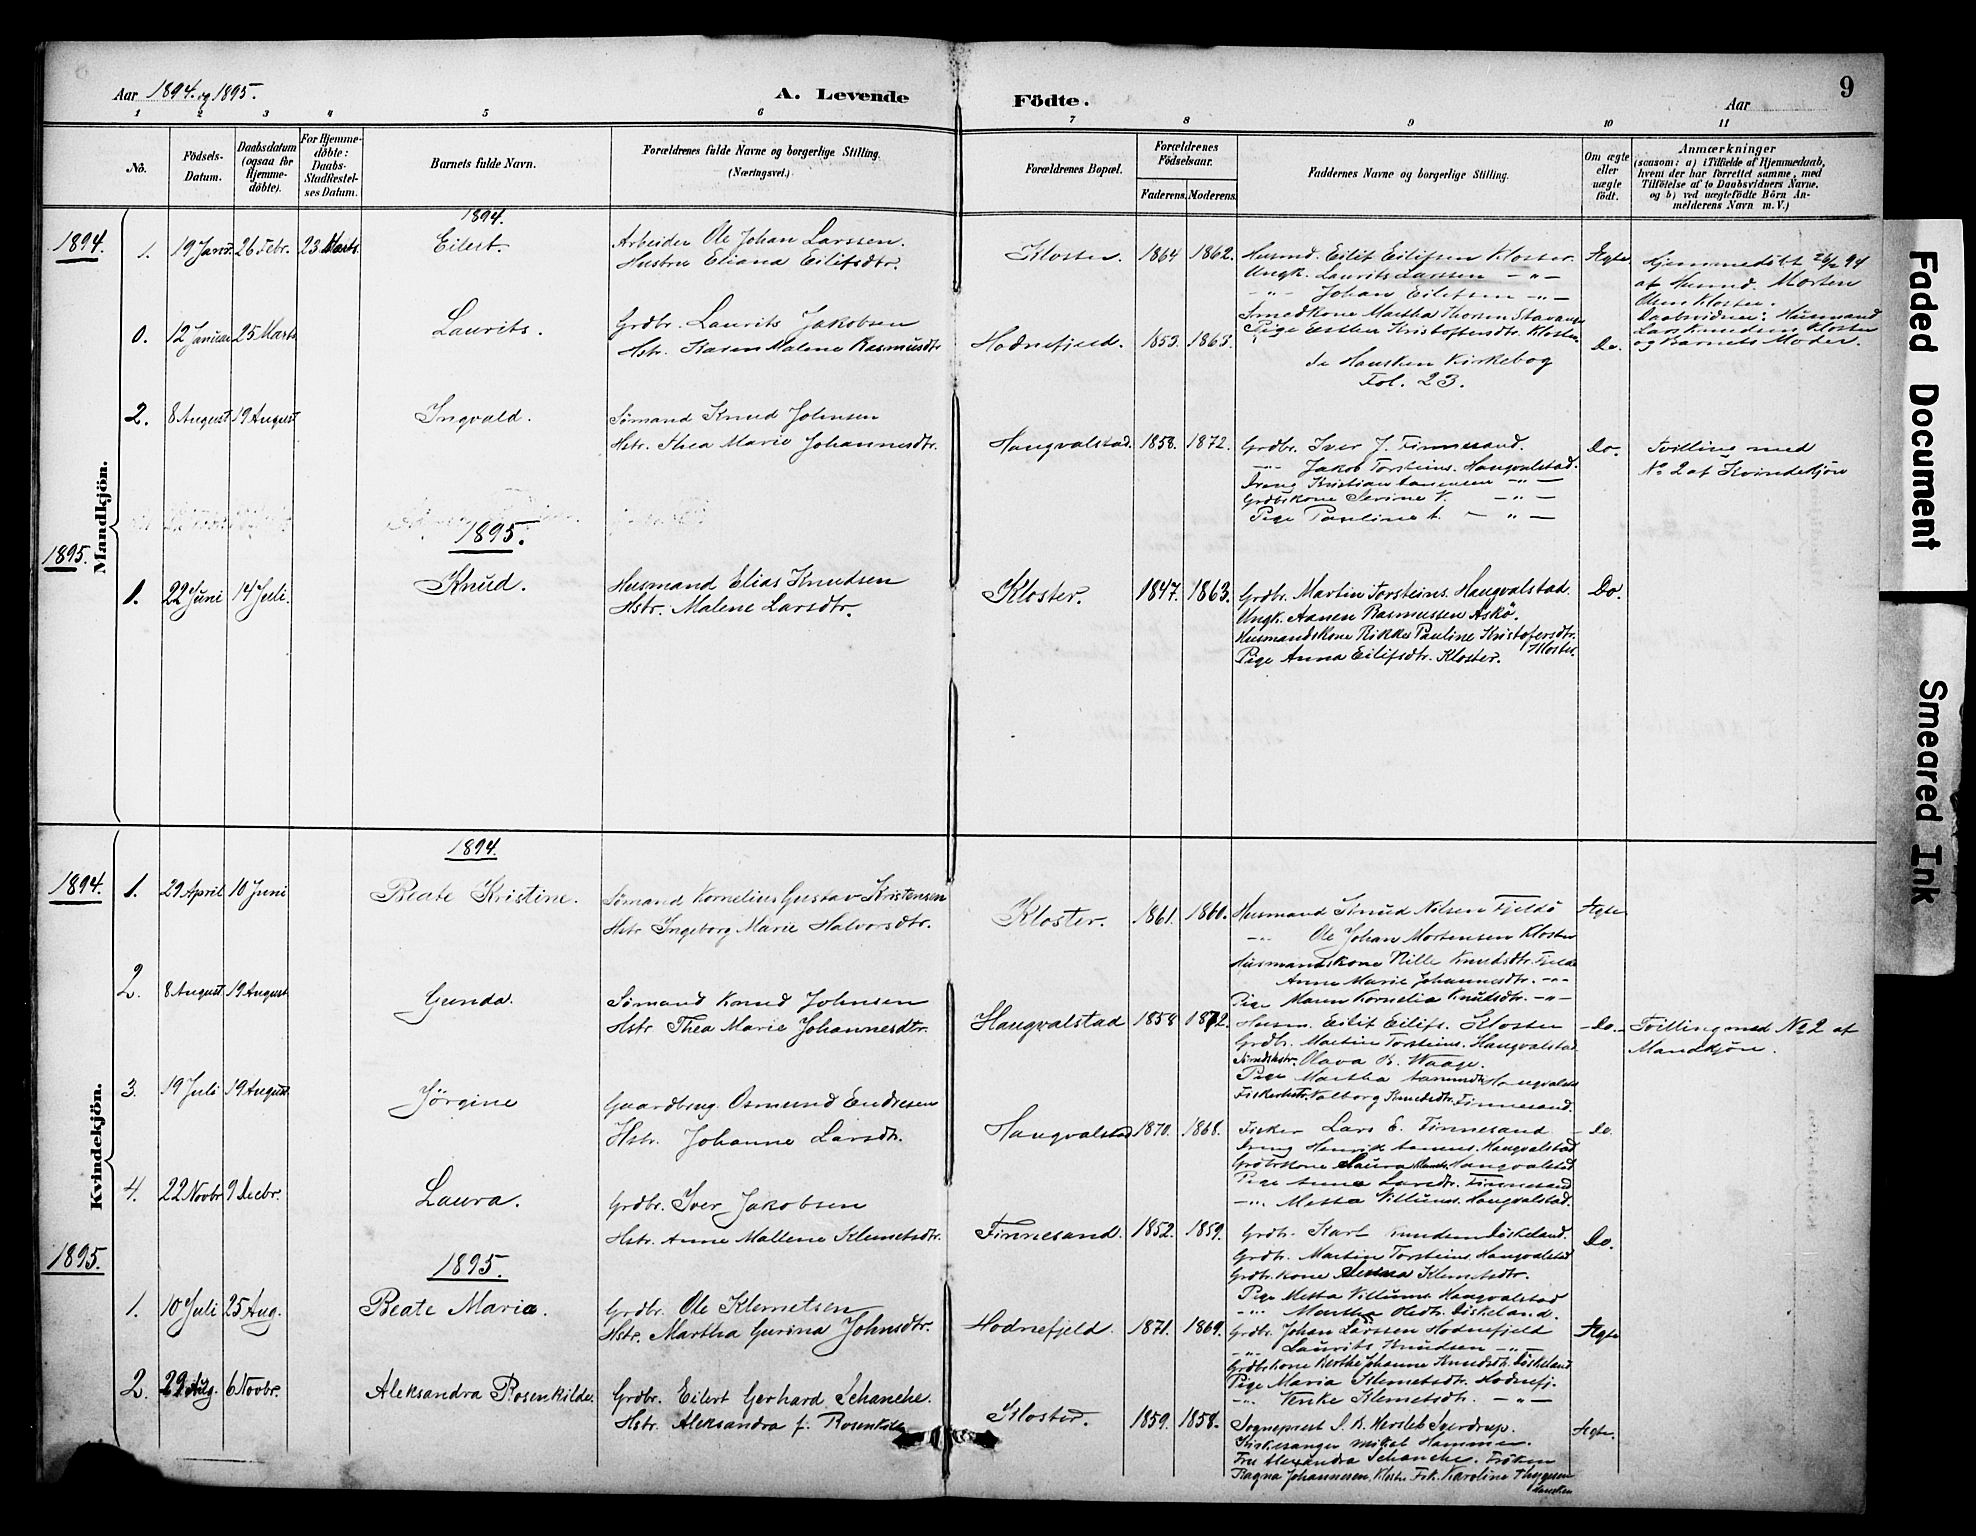 9
Aar 1894 og 1895.
A. Levende Födte.
Aar
1 2 3 4 5 6 7 8 9 10 11
No.
Födsels-Datum.
Daabsdatum (ogsaa for Hjemme-döbte).
For Hjemme-döbte: Daabs-Stadfæstel-ses Datum.
Barnets fulde Navn.
Forældrenes fulde Navne og borgerlige Stilling. (Næringsvei.)
Forældrenes Bopæl.
Forældrenes Födselsaar.
Faderens. Moderens.
Faddernes Navne og borgerlige Stilling.
Om ægte eller uægte født.
Anmærkninger
(saasom: a) i Tilfælde af Hjemmedaab, hvem der har forrettet samme, med Tilföielse af to Daabsvidners Navne. og b) ved uægtefödte Börn An-melderens Navn m. V.)
Mandkjön.
1894.
1894.
1. 19 Janr. 26 Febr. 23 Marts. Eilert.
Arbeider Ole Johan Larssen.
Hustru Eliana Eilifsdtr.
Kloster. 1864 1862.
Husmd. Eilif Eilifsen Kloster.
Ungk. Laurits Larssen - " -
- " - Johan Eilifsen - " -
Smedkone Martha Thorsen Stavanger
Pige Esther Kristoffersdtr. Kloster
Ægte
Hjemmedöbt 26/2 94
af Husmd. Morten
Olsen Kloster.
Daabsvidner: Husmand
Lars Knudsen Kloster
og Barnets Moder.
0. 12 Januar 25 Marts Laurits.
Grdbr. Laurits Jakobsen
Hstr. Karen Malene Rasmusdtr.
Hodnefjeld. 1853. 1863.
Se Hausken Kirkebog
Fol. 23.
Do.
2. 8 August 19 August Ingvald.
Sømand Knud Johnsen
Hstr. Thea Marie Johannesdtr.
Haugvalstad. 1858. 1872.
Grdbr. Iver J. Finnesand.
- " - Jakob Torsteins. Haugvalstad.
Dreng Kristian - " -
Grdbrkone Serine V. - " -
Pige Pauline A. - " -
Do.
Tvilling med
No 2 af Kvindekjøn
1895.
1895.
1. 22 Juni 14 Juli. Knud.
Husmand Elias Knudsen
Hstr. Malene Larsdtr.
Kloster. 1847. 1863.
Grdbr. Martin Torsteins. Haugvalstad.
Ungk. Aanen Rasmussen Askö.
Husmandskone Rikke Pauline Kristofersdtr. Kloster.
Pige Anna Eilifsdtr. Kloster.
Do.
Kvindekjön.
1894.
1894.
1. 29 April 10 Juni Beate Kristine.
Sømand Kornelius Gustav Kristensen
Hstr. Ingeborg Marie Halvorsdtr.
Kloster. 1861. 1860.
Husmand Knud Nilsen Fjeldö
- " - Ole Johan Mortensen Kloster
Husmandskone Nille Knudsdtr. Fjeldö
Anne Marie Johannesdtr. - " -
Pige Maren Kornelia Knudsdtr. - " -
Ægte
2. 8 August 19 August Gunda.
Sømand Knud Johnsen
Hstr. Thea Marie Johannesdtr.
Haugvalstad 1858 1872.
Husm. Eilif Eilifs. Kloster
Grdbr. Martin Torsteins. Haugvalstad
Olava B. Waage.
Pige Martha Haugvalstad
Valborg Knudsdtr. Finnesand.
- Do. -
Tvilling med No 2 af
Mandkjøn.
3. 19 Juli 19 August Jörgine
Gaardbrug. Osmund Endresen
Hstr. Johanne Larsdtr.
Haugvalstad 1870. 1868.
Fisker Lars E. Finnesand
Dreng Henrik Haugvalstad
Grdbrkone Laura Haugvalstad
Pige Anna Larsdtr. Finnesand
- " - Metta Villums. Haugvalstad.
- Do.
4. 22 Novbr 9 Decbr. Laura.
Grdbr. Iver Jakobsen
Hstr. Anne Mallene Klemetsdtr.
Finnesand. 1852. 1859.
Grdbr. Karl Knudsen Diskeland.
Grdbr. Martin Torsteins. Haugvalstad
Grdbr. kone Klemetsdtr.
Pige Metta Villums. Haugvalstad
- " - Martha Olsdtr. Diskeland.
Do.
1895.
1895.
1. 10 Juli 25 Aug. Beate Maria.
Grdbr. Ole Klemetsen
Hstr. Martha Gurina Johnsdtr.
Hodnefjeld. 1871. 1869.
Grdbr. Johan Larssen Hodnefjeld
- " - Laurits Knudsen - " -
Grdbrkone Berthe Johanne Knudsdtr. Diskeland
Pige Maria Klemetsdtr. Hodnefj.
- " - Tenke Klemetsdtr. - " -
Ægte
2. 29 Aug. 6 Novbr. Aleksandra Rosenkilde.
Grdbr. Eilert Gerhard Schanche.
Hstr. Aleksandra f. Rosenkilde
Kloster. 1859. 1858.
Sogneprest J. B. Hersleb Sverdrup.
Kirkesanger Mikal Hammer.
Fru Alexandra Schanche. Fröken
Ragna Johannesen, Kloster Frk. Karoline Thygesen
Hausken
Ægte.
Faded Document
Smeared Ink